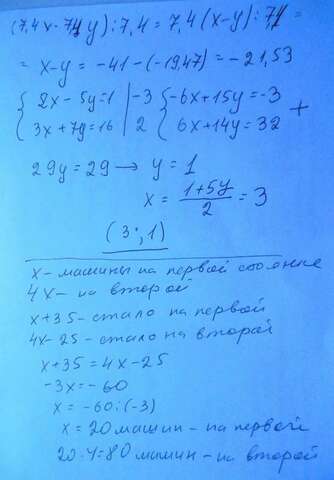 (7,4x-7,4y):7,4=7,4(x-y):7,4=
=x-y=-41-(-19,47)=-21,53
{2x-5y=1 |-3 {-6x+15y=-3
{3x+7y=16 | 2 {6x+14y=32 +
29y=29 → y=1
x=(1+5y)/2=3
(3;1)
x-машины на первой стоянке
4x-на второй
x+35-стало на первой
4x-25-стало на второй
x+35=4x-25
-3x=-60
x=-60:(-3)
x=20 машин-на первой
20·4=80 машин-на второй